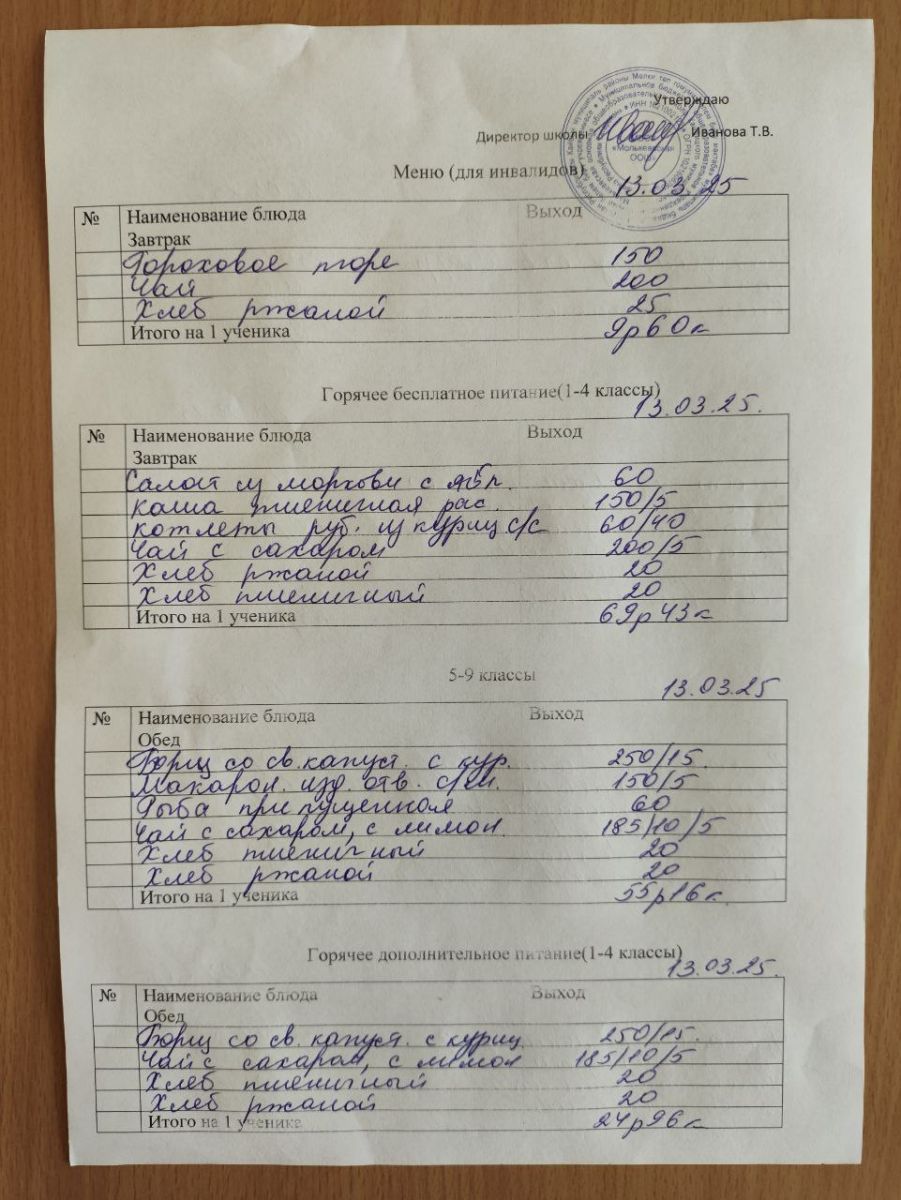 Утверждаю
Директор школы Иванова Т.В.
«Молькеевская
ООШ»
Меню (для инвалидов) 13.03.25
№ Наименование блюда Выход
Завтрак
Гороховое пюре 150
Чай 200
Хлеб ржаной 25
Итого на 1 ученика 9р60к
Горячее бесплатное питание(1-4 классы)
13.03.25.
№ Наименование блюда Выход
Завтрак
Салат из моркови с ябл. 60
каша пшеничная рас. 150/5
котлеты руб. из куриц с/с 60/40
Чай с сахаром 200/5
Хлеб ржаной 20
Хлеб пшеничный 20
Итого на 1 ученика 69р43к
5-9 классы
13.03.25
№ Наименование блюда Выход
Обед
Борщ со св.капуст. с кур. 250/15.
Макарон. изд. отв. с/м. 150/5
Рыба припущенная 60
Чай с сахаром, с лимон. 185/10/5
Хлеб пшеничный 20
Хлеб ржаной 20
Итого на 1 ученика 55р16к.
Горячее дополнительное питание(1-4 классы)
13.03.25.
№ Наименование блюда Выход
Обед
Борщ со св. капуст. с куриц 250/15.
Чай с сахаром, с лимон 185/10/5
Хлеб пшеничный 20
Хлеб ржаной 20
Итого на 1 ученика 24р96к